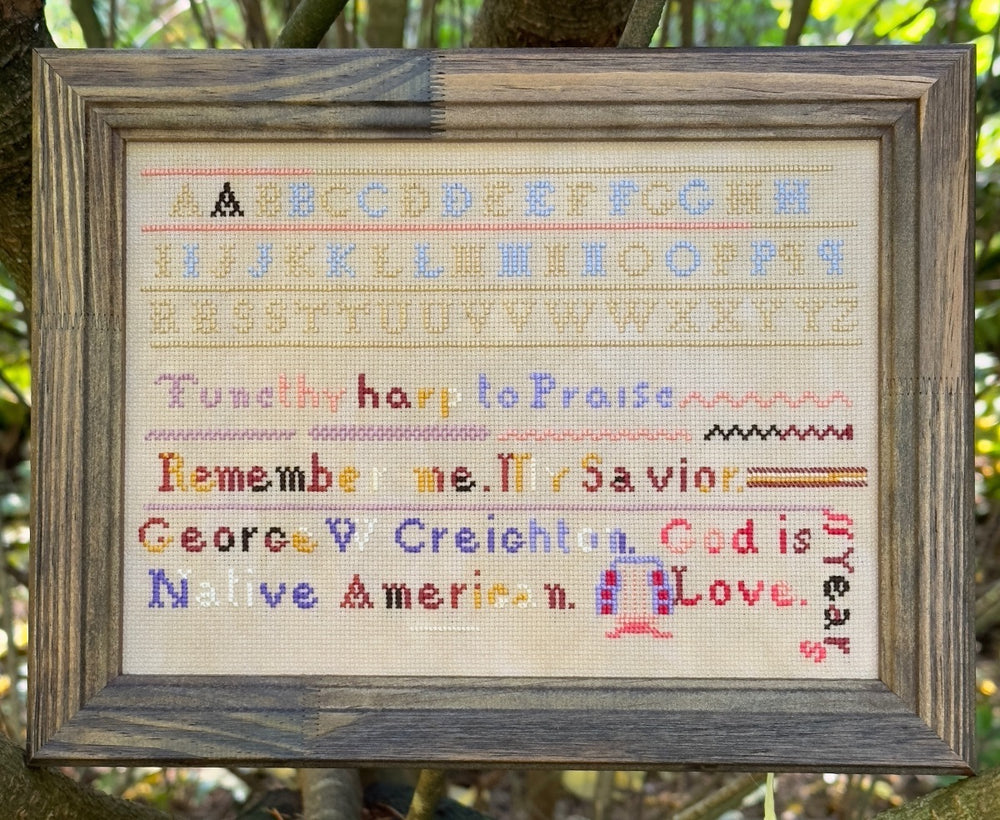 A A B B C C D D E E F F G G H H
I I J J K K L L M M N N O O P P q q
R R S S T T U U V V W W X X Y Y Z
Tune thy harp to Praise
Remember me. My Savior.
George W W Creichton. God is
Native American. Love.
Years